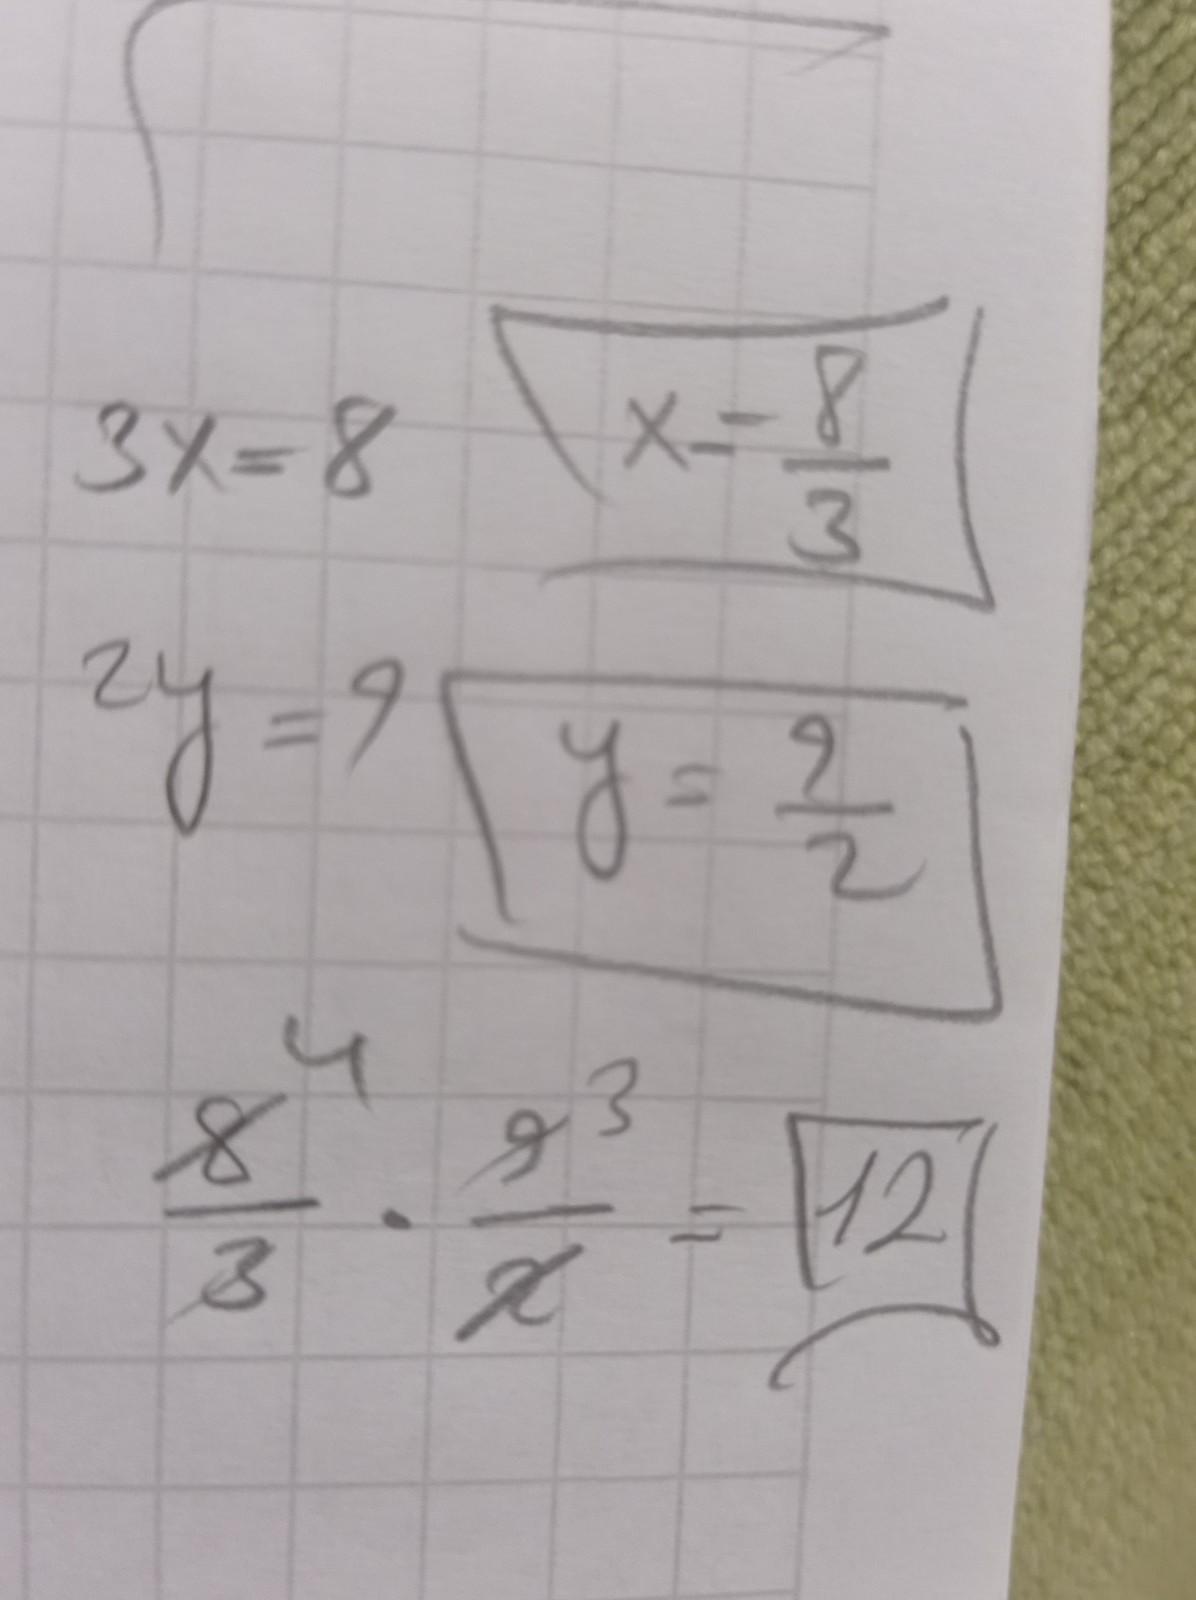 3x = 8 x = 8/3
2y = 9 y = 9/2
8/3 4 · 9/2 3 = 12